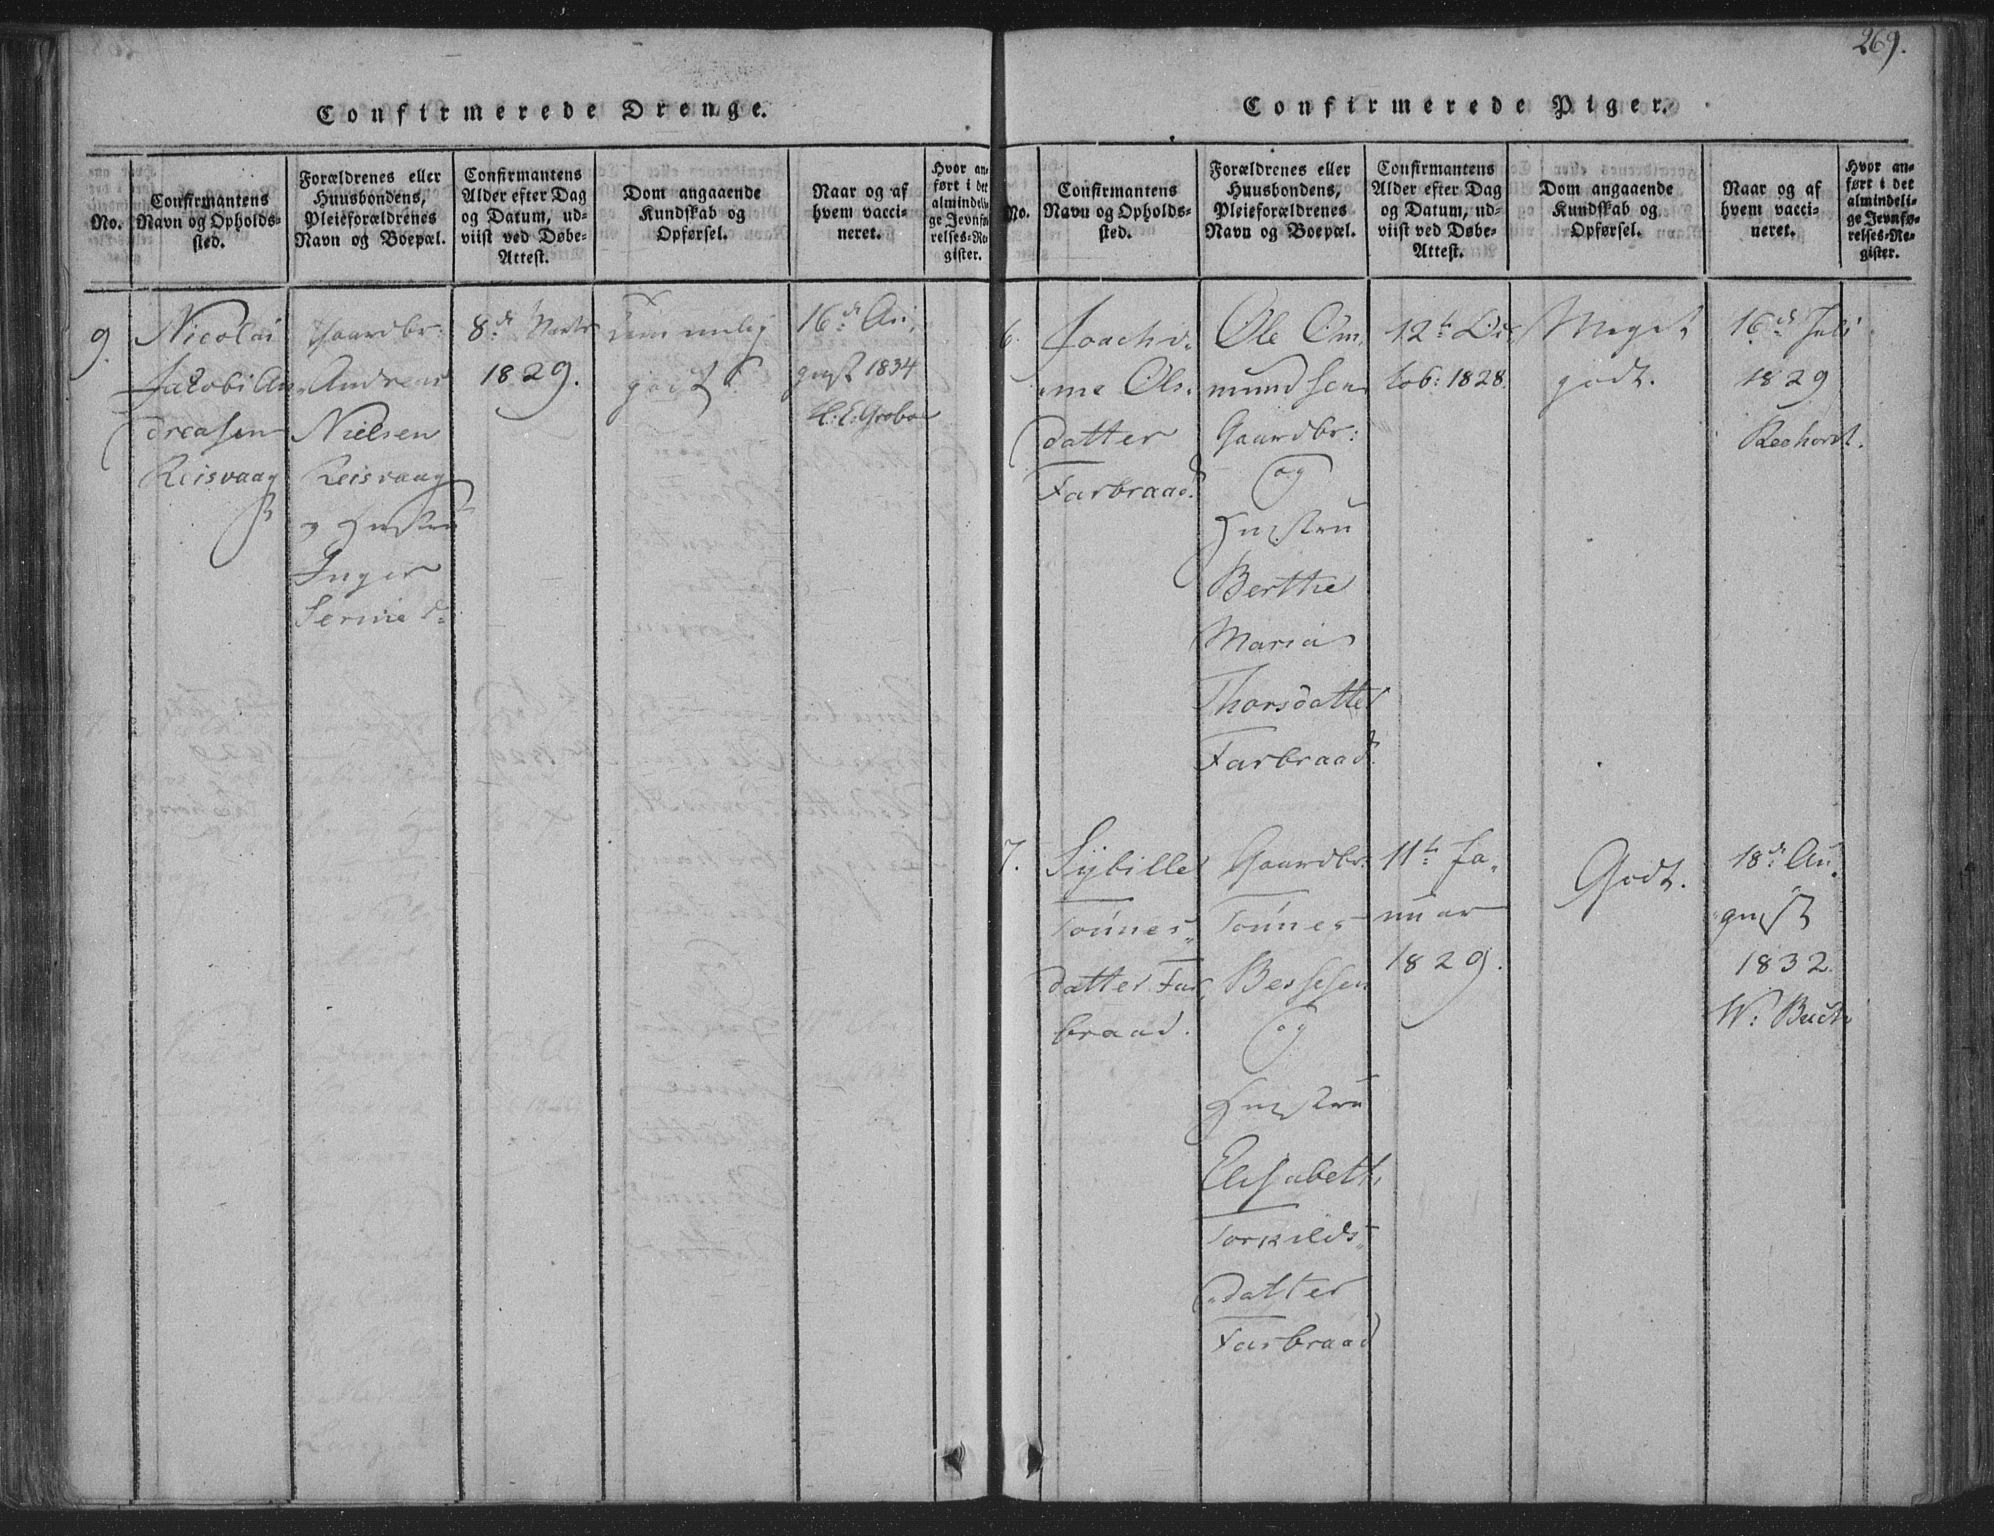 269.
Confirmerede Drenge.
No.
Confirmantens
Navn og Opholds-
sted.
Forældrenes eller
Huusbondens,
Pleieforældrenes
Navn og Boepæl.
Confirmantens
Alder efter Dag
og Datum, ud-
viist ved Døbe-
Attest.
Dom angaaende
Kundskab og
Opførsel.
Naar og af
hvem vacci-
neret.
Hvor an-
ført i det
almindeli-
ge Jevnfø-
relses-Re-
gister.
9.
Nicolai
Jacobi An
dreasen
Reisvaag
Gaardbr:
Andreas
Nielsen
Reisvaag
og Hustru
Inger
Serine d:
8de
1829.
godt
16de Au,
gust 1834
Confirmerede Piger.
No.
Confirmantens
Navn og Opholds-
sted.
Forældrenes eller
Huusbondens,
Pleieforældrenes
Navn og Boepæl.
Confirmantens
Alder efter Dag
og Datum, ud-
viist ved Døbe-
Attest.
Dom angaaende
Kundskab og
Opførsel.
Naar og af
hvem vacci-
neret.
Hvor an-
ført i det
almindeli-
ge Jevnfø-
relses-Re-
gister.
6.
Joachi-
me Ols-
datter
Farbraad.
Ole Om,
mundsen
Gaardbr:
og
Hustru
Berthe
Maria
Thorsdatter
Farbraad.
12te Oc
tob: 1828.
Meget
godt.
16de Juli
1829
Reehorst.
7.
Sybille
Tønnes-
datter Far,
braad.
Gaardbr:
Tønnes
Bessesen
og
Hustru
Elisabeth
Torkilds-
datter
Farbraad
11te Ja-
nuar
1829.
Godt.
18de Au-
gust
1832.
W: Buch